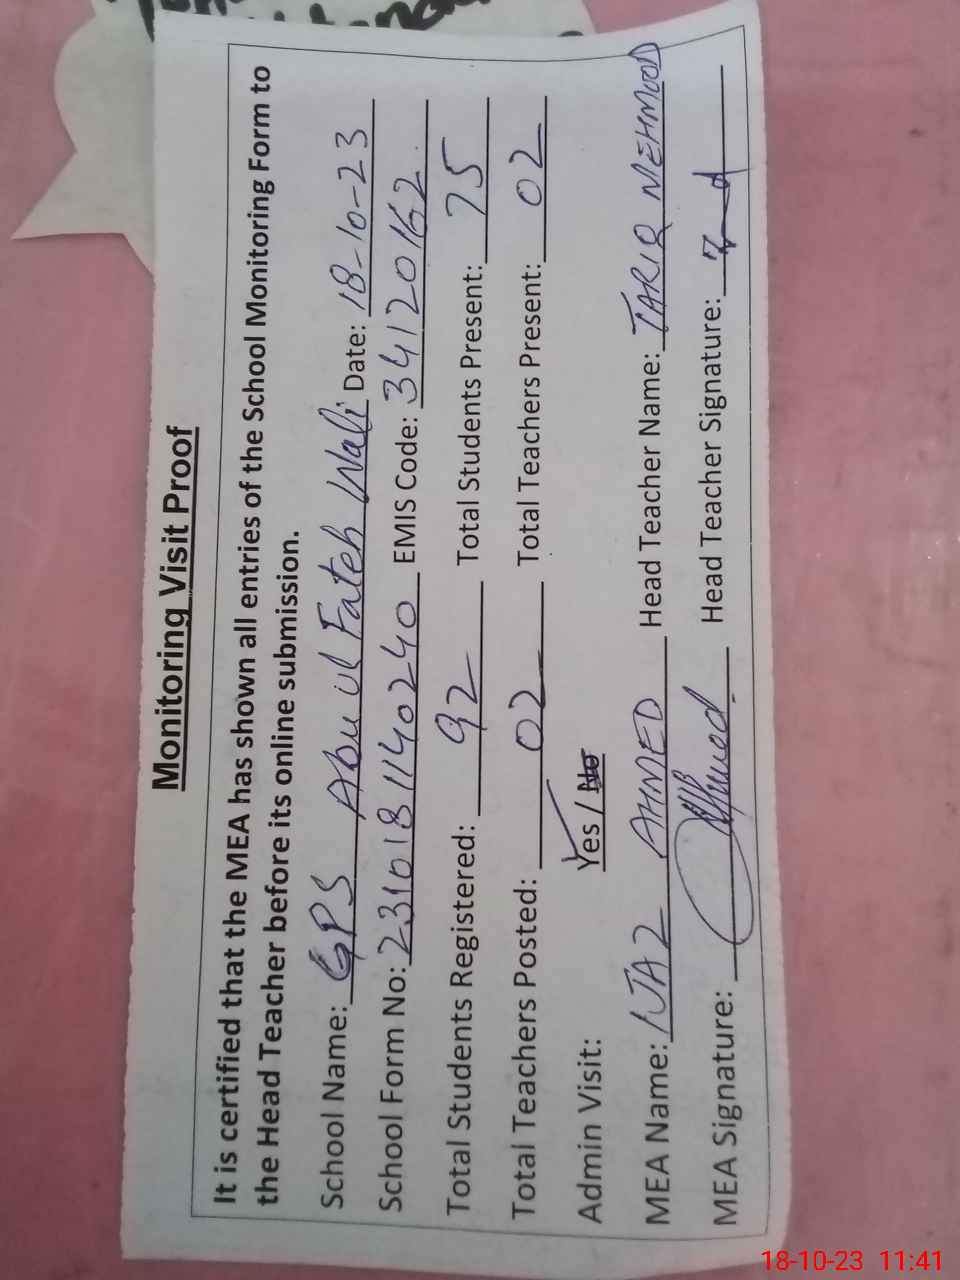 Monitoring Visit Proof
It is certified that the MEA has shown all entries of the School Monitoring Form to
the Head Teacher before its online submission.
School Name: GPS Abu ul Fateh Wali Date: 18-10-23
School Form No: 2310181140240 EMIS Code: 34120162
Total Students Registered: 92 Total Students Present: 75
Total Teachers Posted: 02 Total Teachers Present: 02
Admin Visit: Yes / No
MEA Name: IJAZ AHMED Head Teacher Name: TARIQ MEHMOOD
MEA Signature: Head Teacher Signature:
18-10-23 11:41